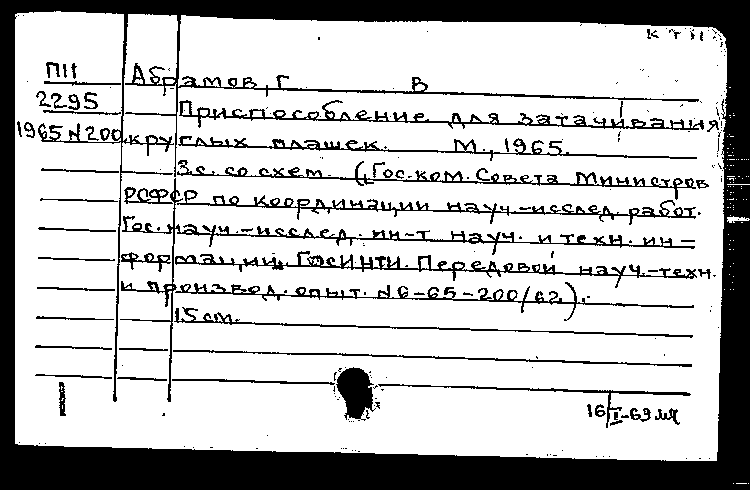 К Т П
П11 Абрамов, Г В
2295 Приспособление для затачивания
1965 N200 круглых плашек. М., 1965.
3 с. со схем. (Гос. ком. Совета Министров
РСФСР по координации науч.-исслед. работ.
Гос. науч.-исслед. ин-т науч. и техн. ин-
формации. ГОСИНТИ. Передовой науч.-техн.
и производ. опыт. N 6-65-200/62).
15 см.
16/I-69